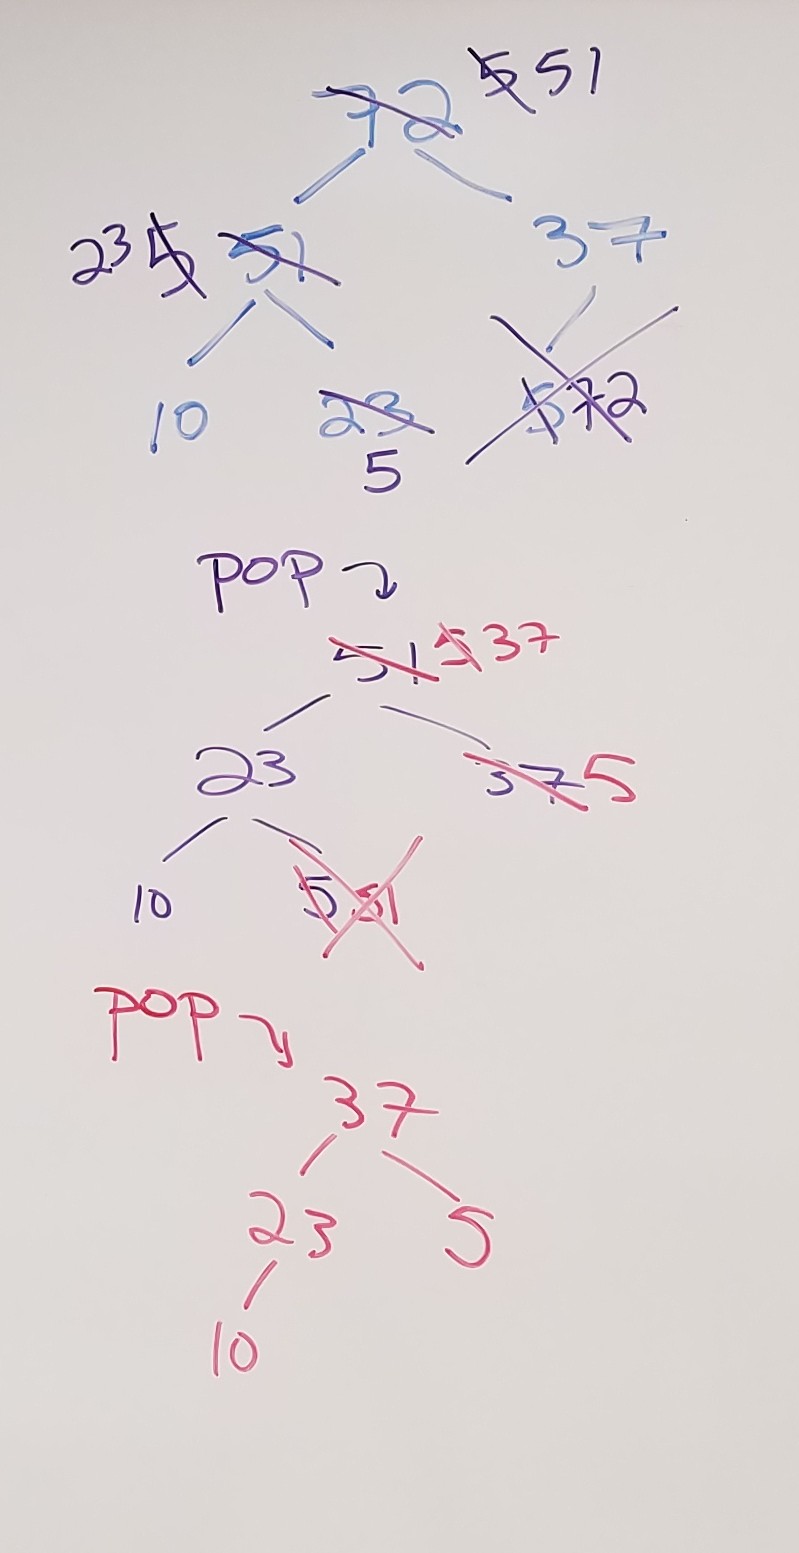 72 5 51
23 5 51 37
10 23 5 72
5
POP
51 5 37
23 37 5
10 5 51
POP
37
23 5
10